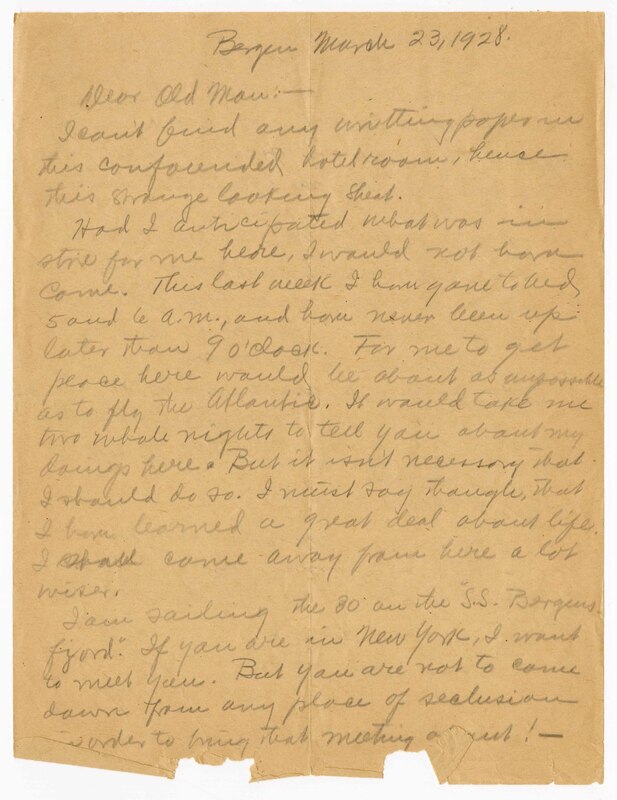 Bergen March 23, 1928.
Dear Old Man:—
I can't find any writting paper in
this confounded hotel room, hense
this strange looking sheat.
Had I anticipated what was in
store for me here, I would not have
come. This last week I have gone to bed
5 and 6 A.M., and have never been up
later than 9 o'clock. For me to get
peace here would be about as impossible
as to fly the Atlantic. It would take me
two whole nights to tell you about my
doings here. But it isn't necessary that
I should do so. I must say though, that
I have learned a great deal about life.
I shall come away from here a lot
wiser.
I am sailing the 30 on the "S.S. Bergens-
fjord". If you are in New York, I want
to meet you. But you are not to come
down from any place of seclusion
in order to bring that meeting about! —